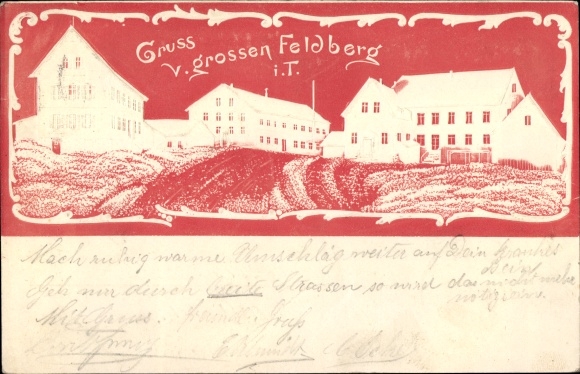 Gruss
v. grossen Feldberg
i.T.
Mach ruhig warme Umschläg weiter auf Dein krankes
Bein
Geh nur durch breite Strassen so wird das nicht mehr
nötig sein.
Mit Gruss. freundl. Gruß